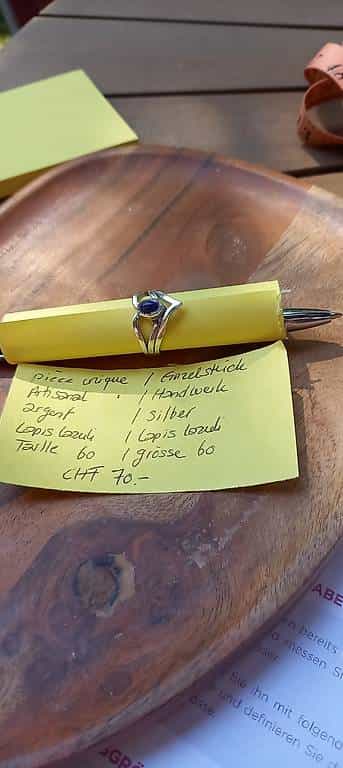 pièce unique / Einzelstück
Artisanal / Handwerk
argent / Silber
Lapis lazuli / Lapis lazuli
Taille 60 / grösse 60
CHF 70.-
ABE
bereits
messen Si
Sie ihn mit folgend
und definieren Sie d
össe.